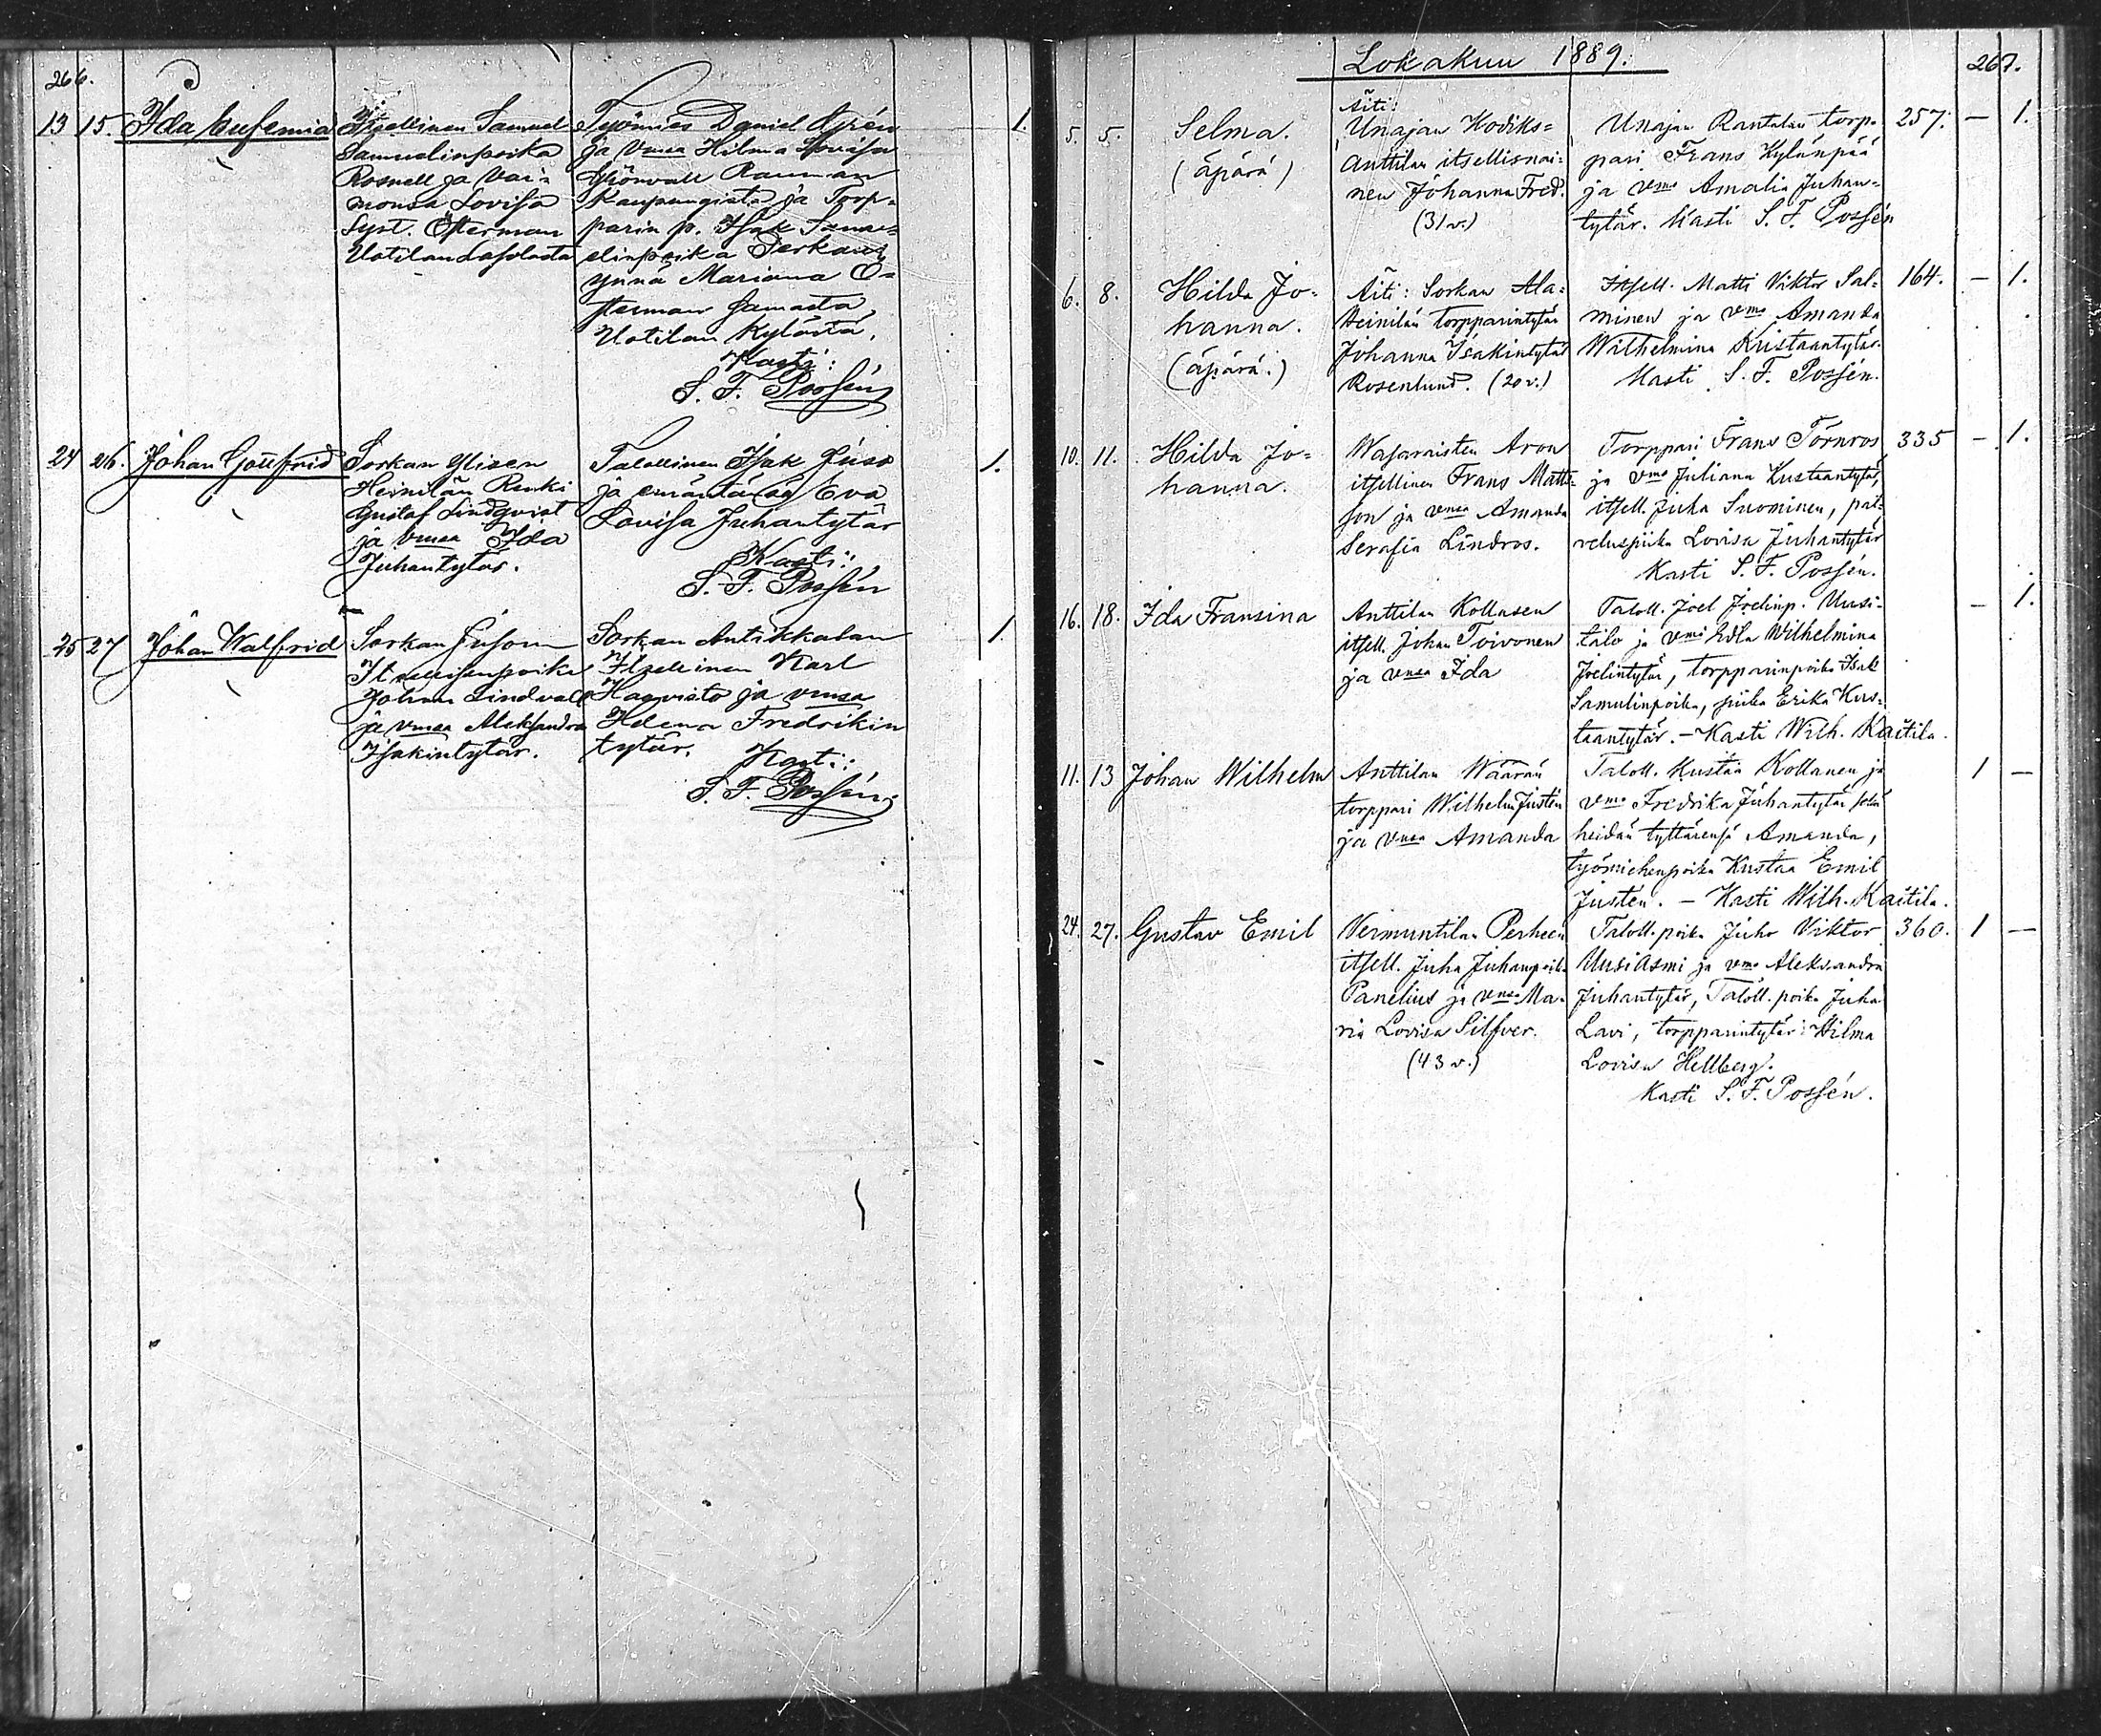 266.
13 15. Ida Eufemia
Itsellinen Samuel
Samuelinpoika
Rosnell ja vai=
monsa Lovisa
Öfterman
Uotilan
Työmies Daniel Nyrén
ja vmsa Hilma Lovisa
Grönvall Rauman
Kaupungista ja Torp=
parin p. Isak Samu=
elinpoika
Mariana Ö=
fterman samasta
Uotilan Kylästä.
Kasti:
S. F. Possén
1.
24 26. Johan Gottfrid
Sorkan Ylisen
Heinilän Renki
Gustaf Lindqvist
ja vmsa Ida
Juhantytär.
Talollinen Isak Juso
ja emäntänsä Eva
Lovisa Juhantytär
Kasti:
S. F. Possén
1.
25 27 Johan Walfrid
Sorkan Juson
Itsellisenpoika
Johan Lindvall
ja vmsa Aleksandra
Isakintytär.
Sorkan Antikkalan
Itsellinen Karl
Hagvist ja vmsa
Helena Fredrikin
tytär.
Kasti:
S. F. Possén
1.
Lokakuu 1889.
267.
5. 5. Selma.
(äpärä)
Äiti:
Unajan Kodiks=
Anttilan itsellisnai=
nen Johanna Fred.
(31 v.)
Unajan Rantalan torp=
pari Frans Kylänpää
ja vmo Amalia Juhan=
tytär. Kasti S. F. Possén
257. — 1.
6. 8. Hilda Jo=
hanna.
(äpärä.)
Äiti: Sorkan Ala=
Heinilän torpparintytär
Johanna Isakintytär
Rosenlund. (20 v.)
Itsell. Matti Viktor Sal=
minen ja vmo Amanda
Wilhelmina Kustaantytär.
Kasti S. F. Possén.
164. — 1.
10. 11. Hilda Jo=
hanna.
Wasaraisten Aron
itsellinen Frans Matts=
son ja vmsa Amanda
Serafia Lindros.
Torppari Frans Törnros
ja vmo Juliana Kustaantytär,
itsell. Juha Suominen, pal=
veluspiika Lovisa Juhantytär
Kasti S. F. Possén.
335 — 1.
16. 18. Ida Fransina
Anttilan Kollasen
itsell. Johan Toivonen
ja vmsa Ida
Taloll. Joel Joelinp. Uusi=
talo ja vmo Edla Wilhelmina
Joelintytär, torpparinpoika Isak
Samulinpoika, piika Erika Kus=
taantytär. — Kasti Wilh. Kaitila.
— 1.
11. 13 Johan Wilhelm
Anttilan Wäärän
torppari Wilhelm Justén
ja vmsa Amanda
Taloll. Kustaa Kollanen ja
vmo Fredrika Juhantytär sekä
heidän tyttärensä Amanda,
työmiehenpoika Kustaa Emil
Justén. — Kasti Wilh. Kaitila.
1 —
24. 27. Gustav Emil
Vermuntilan Perheen
itsell. Juha Juhanpoika
Panelius ja vmsa Ma=
ria Lovisa Silfver.
(43 v.)
Taloll. poika Juho Viktor
Uusiasmi ja vmo Aleksandra
Juhantytär, Taloll. poika Juha
Lavi, torpparintytär Hilma
Lovisa Hellberg.
Kasti S. F. Possén.
360. 1 —